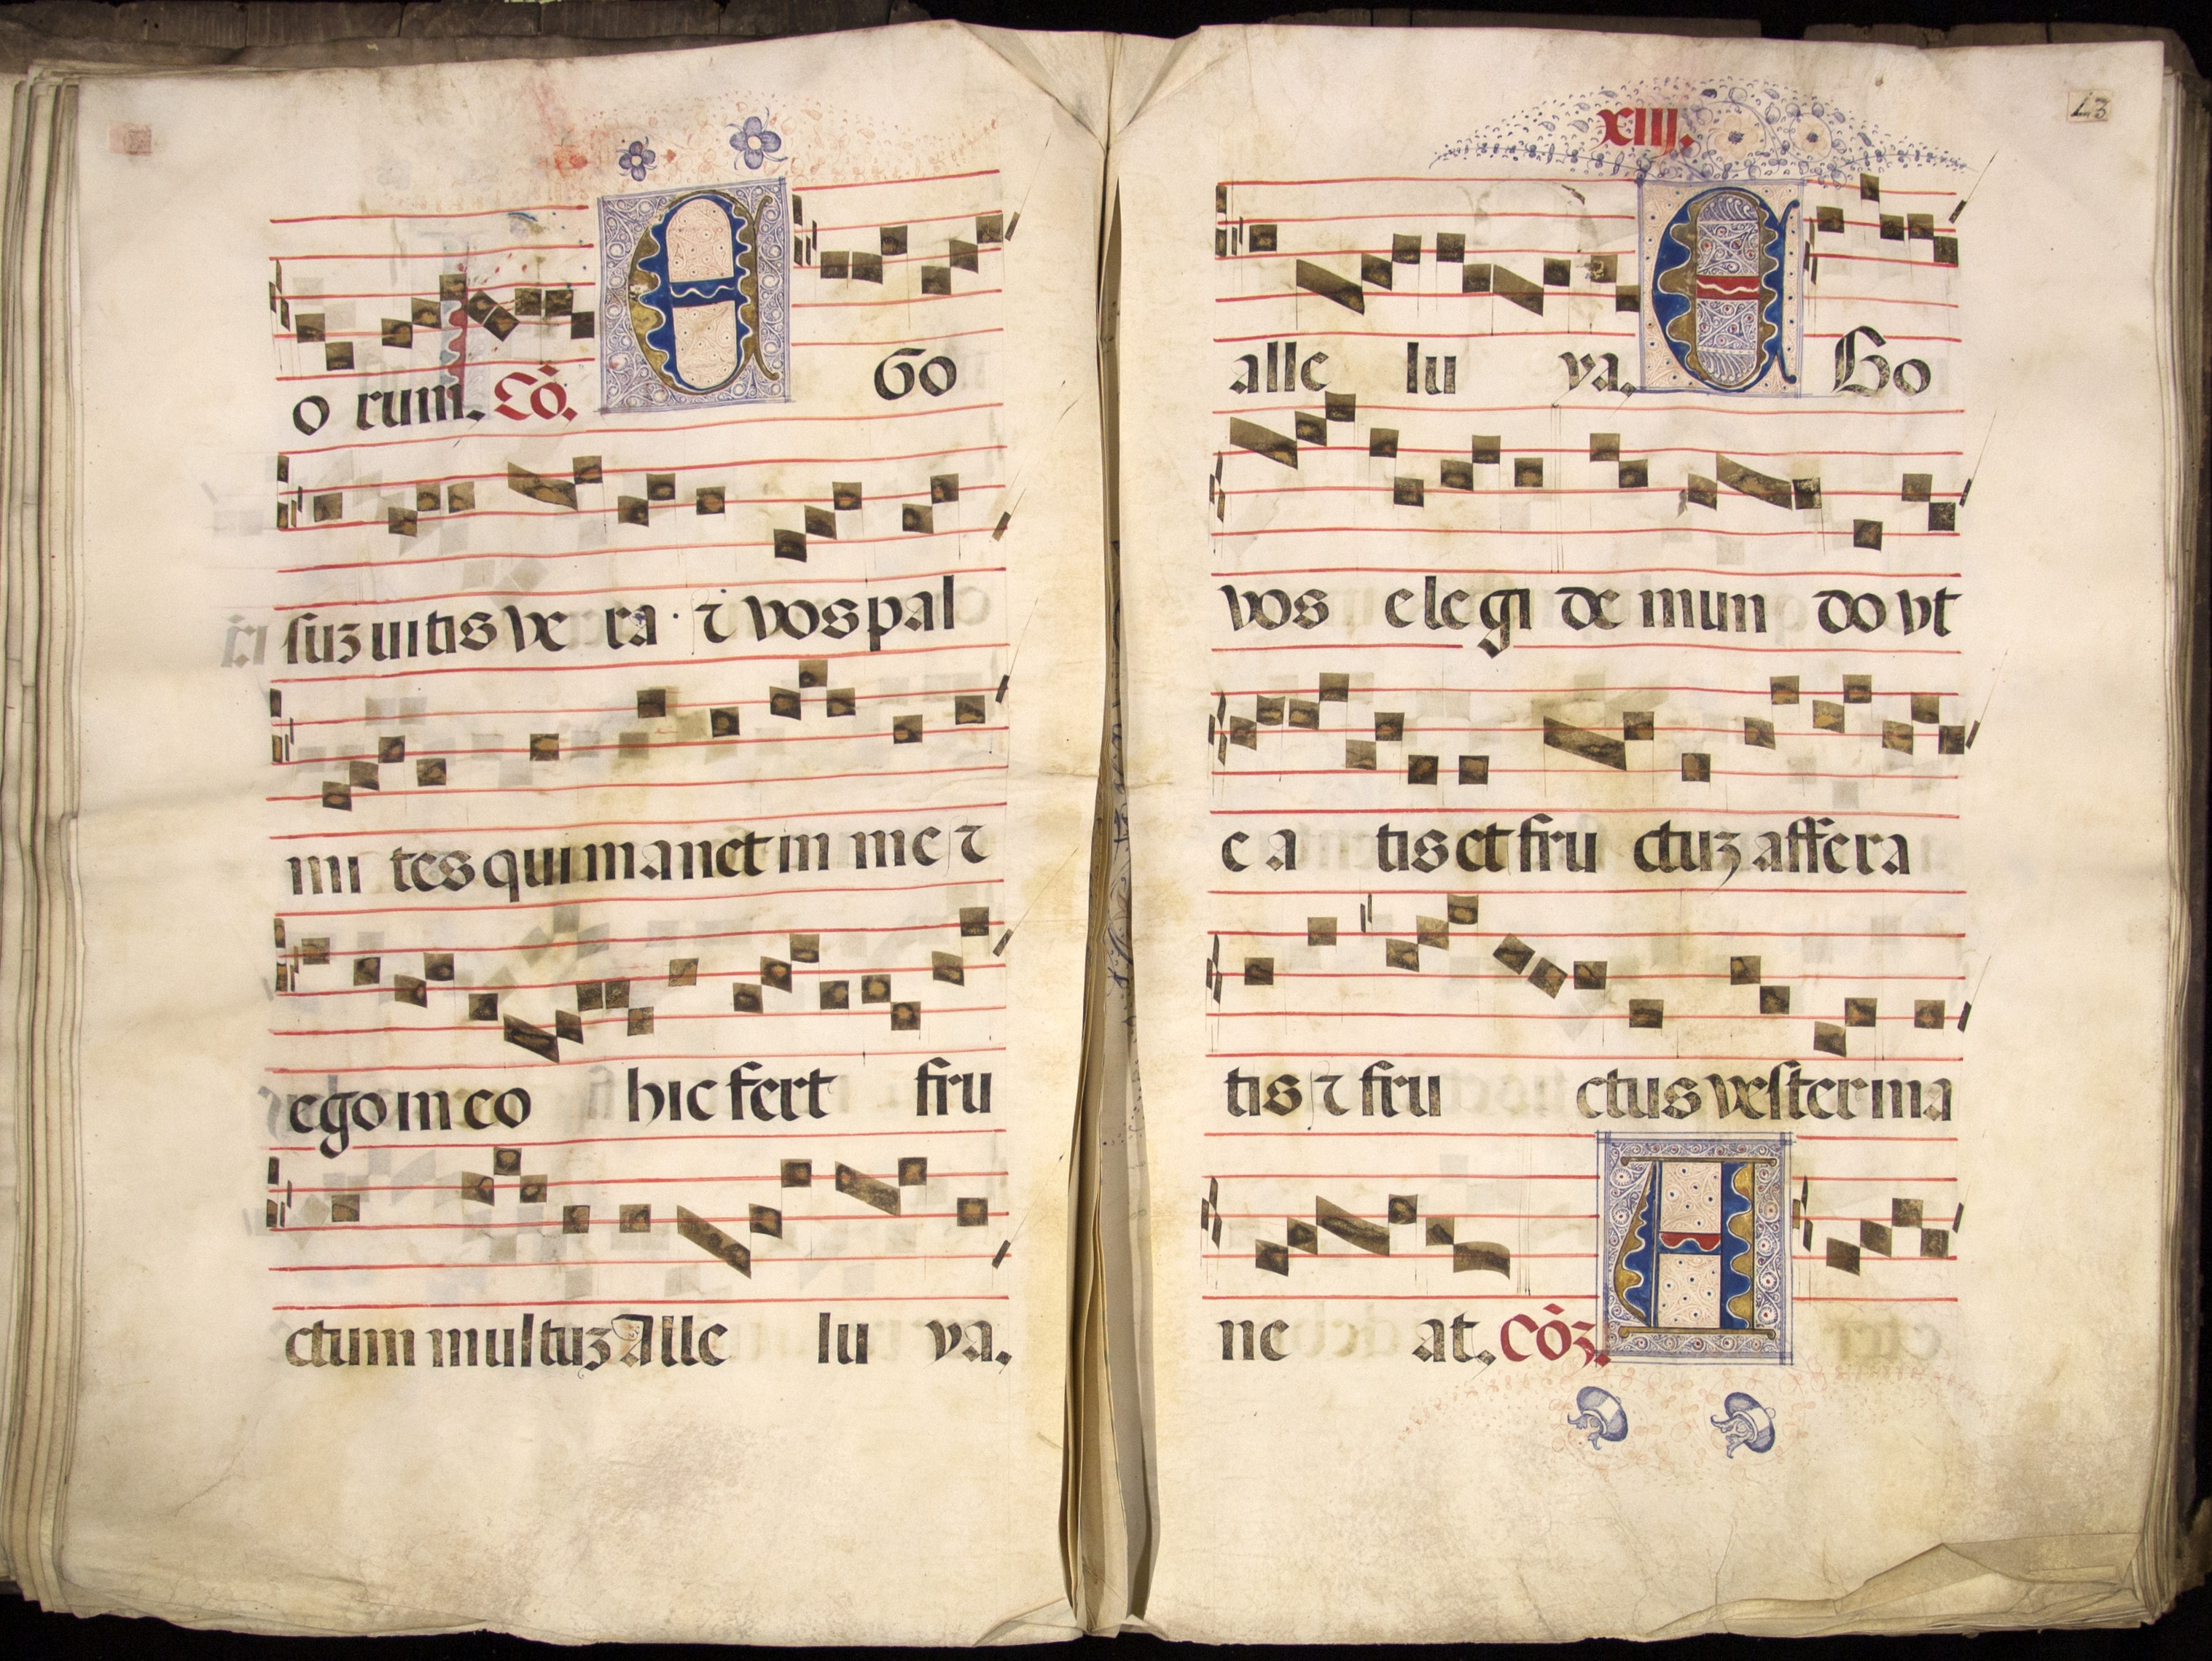 o rum. Cō. E Go
suz uitis ve ra · ⁊ vos pal
mi tes qui manet in me ⁊
ego in eo hic fert fru
ctum multuz Alle lu ya.
XIIIJ.
43
alle lu ya. E Go
vos elegi de mun do vt
e a tis et fru ctuz affera
tis ⁊ fru ctus vester ma
ne at. Cōz. A